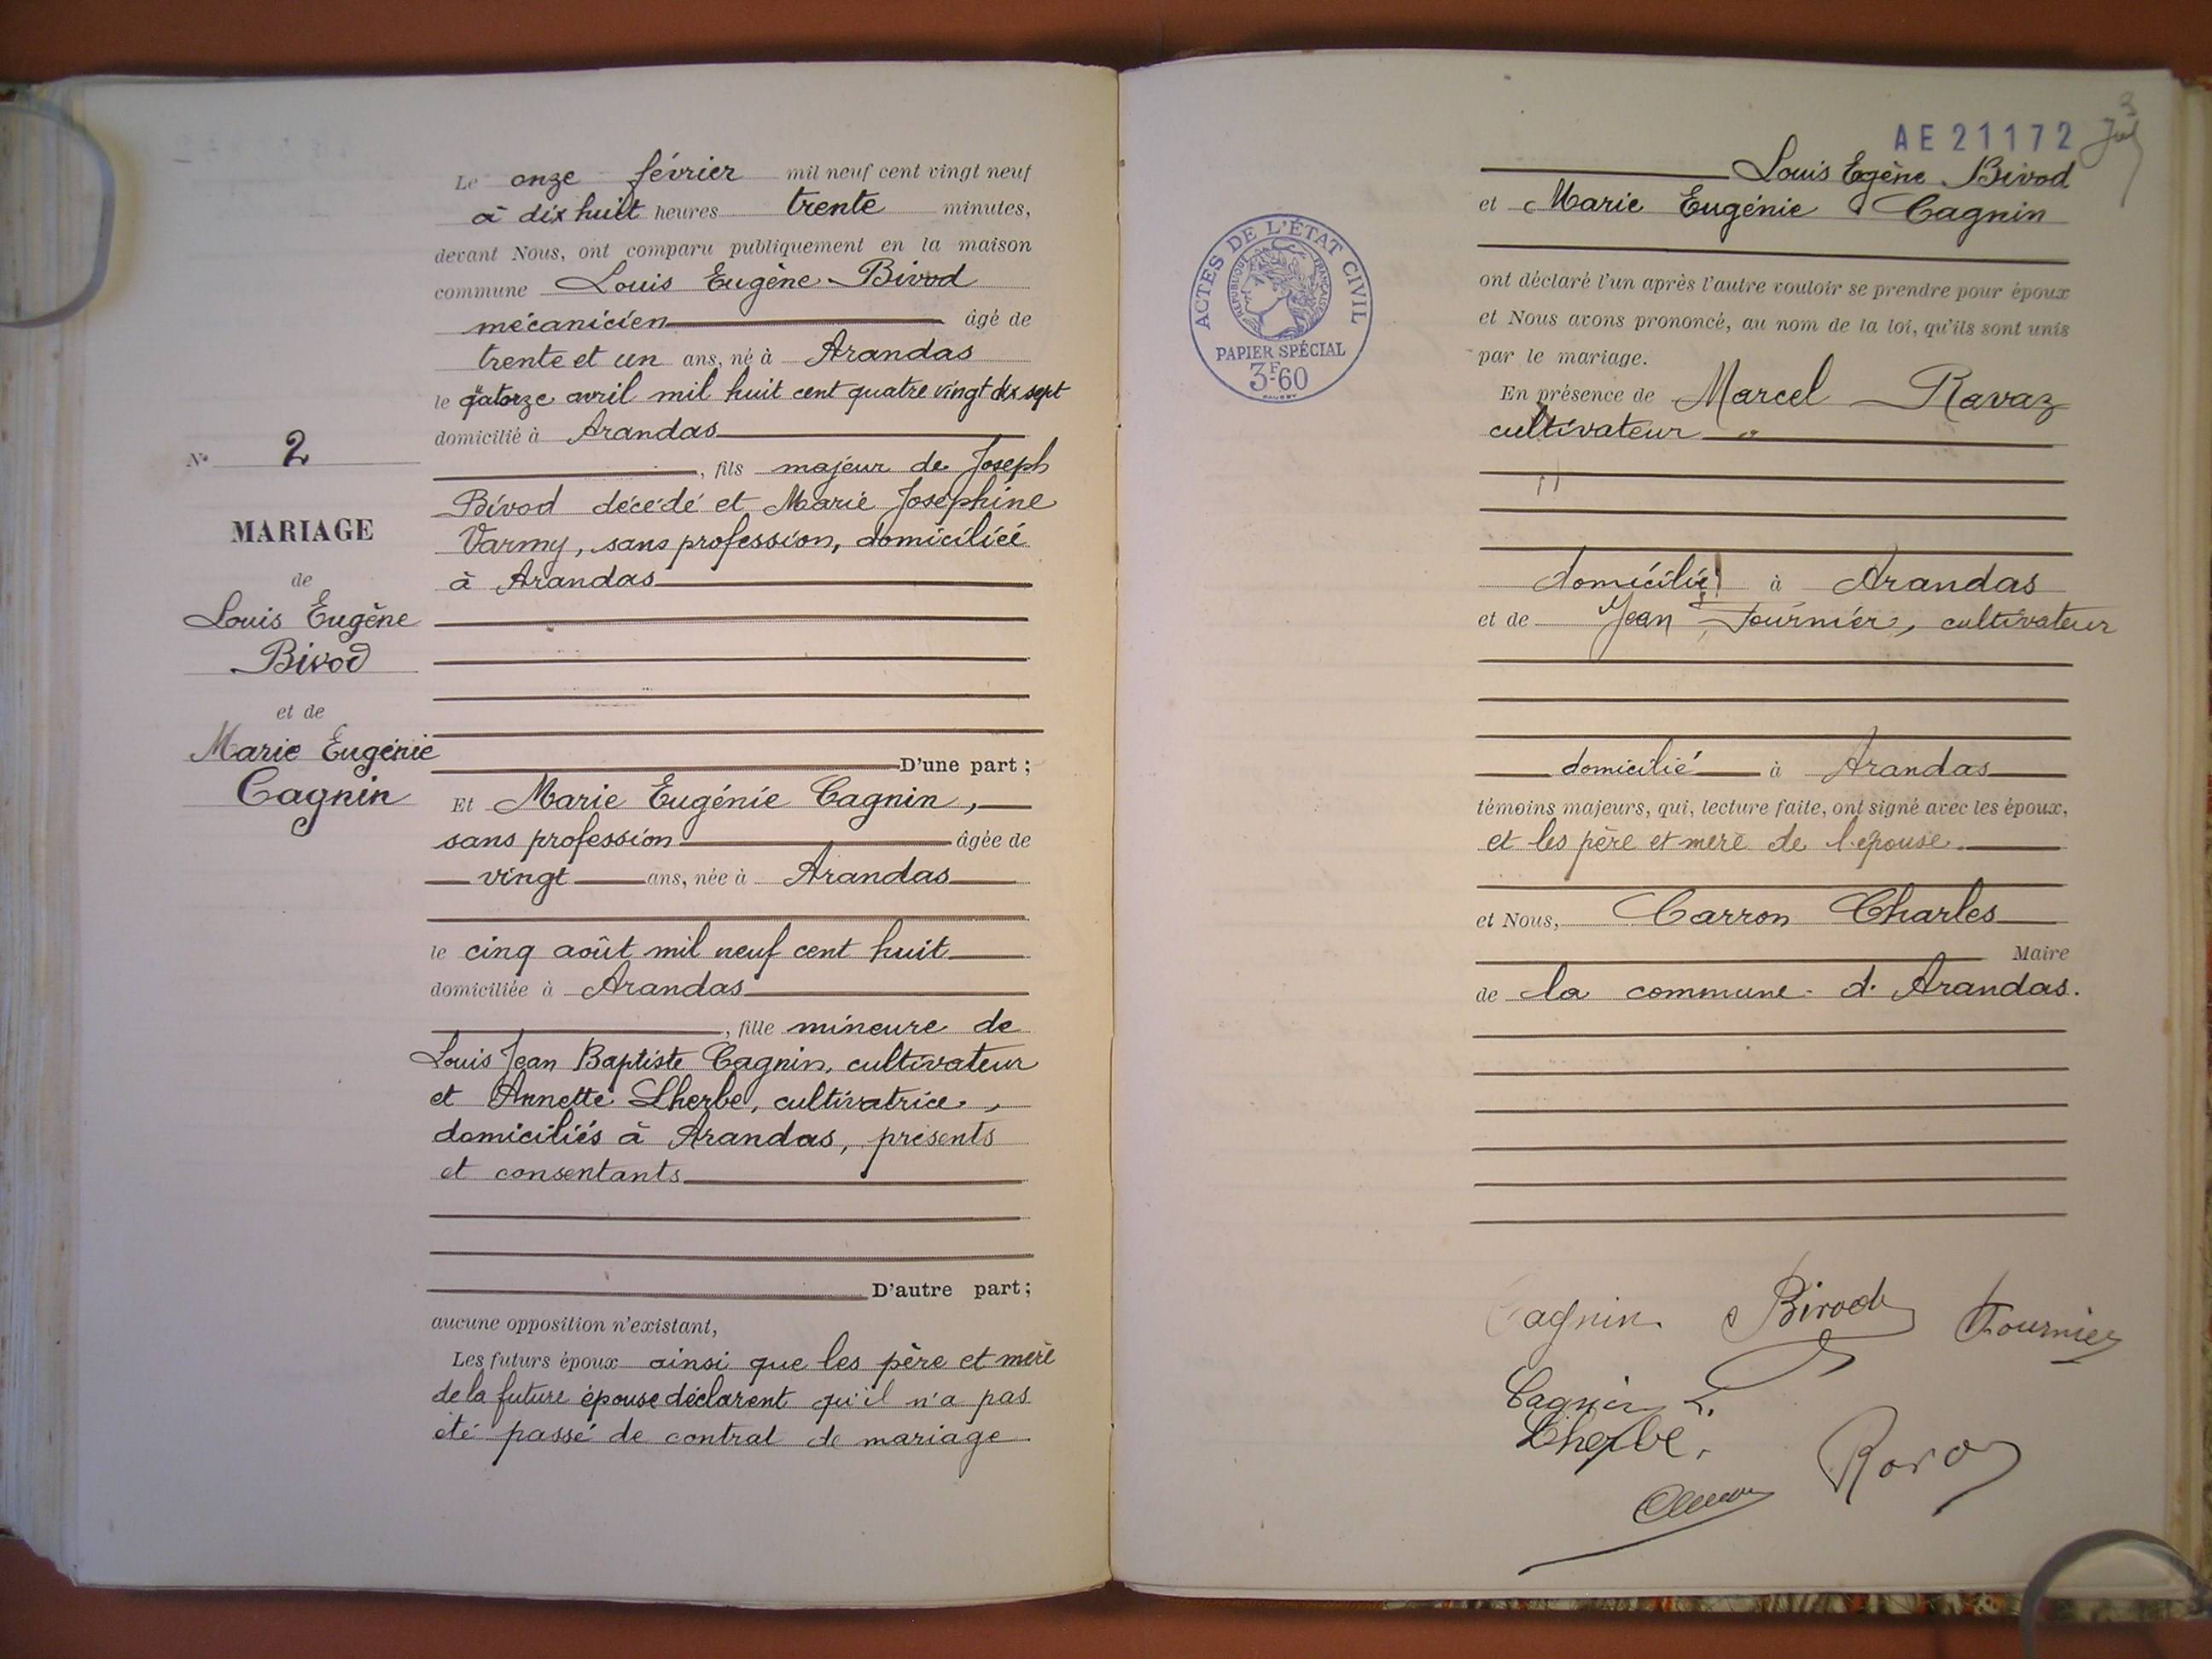 Le onze février mil neuf cent vingt neuf
à dix huit heures trente minutes,
devant Nous, ont comparu publiquement en la maison
commune Louis Eugène Bivod
mécanicien âgé de
trente et un ans, né à Arandas
le quatorze avril mil huit cent quatre vingt dix sept
domicilié à Arandas
, fils majeur de Joseph
Bivod décédé et Marie Josephine
Varmy, sans profession, domiciliée
à Arandas
D'une part ;
N° 2
MARIAGE
de
Louis Eugène
Bivod
et de
Marie Eugénie
Cagnin
Et Marie Eugénie Cagnin,
sans profession âgée de
vingt ans, née à Arandas
le cinq août mil neuf cent huit
domiciliée à Arandas
, fille mineure de
Louis Jean Baptiste Cagnin, cultivateur
et Annette Lherbe, cultivatrice,
domiciliés à Arandas, présents
et consentants
D'autre part ;
aucune opposition n'existant,
Les futurs époux ainsi que les père et mère
de la future épouse déclarent qu'il n'a pas
été passé de contrat de mariage
AE21172
3
ACTES DE L'ÉTAT CIVIL
RÉPUBLIQUE FRANÇAISE
PAPIER SPÉCIAL
3F60
Louis Eugène Bivod
et Marie Eugénie Cagnin
ont déclaré l'un après l'autre vouloir se prendre pour époux
et Nous avons prononcé, au nom de la loi, qu'ils sont unis
par le mariage.
En présence de Marcel Ravaz
cultivateur
domicilié à Arandas
et de Jean Fournier, cultivateur
domicilié à Arandas
témoins majeurs, qui, lecture faite, ont signé avec les époux,
et les père et mère de l'épouse.
et Nous, Carron Charles
Maire
de la commune d'Arandas.
Cagnin Bivod Fournier
Cagnin L.
Lherbe.
Ravaz